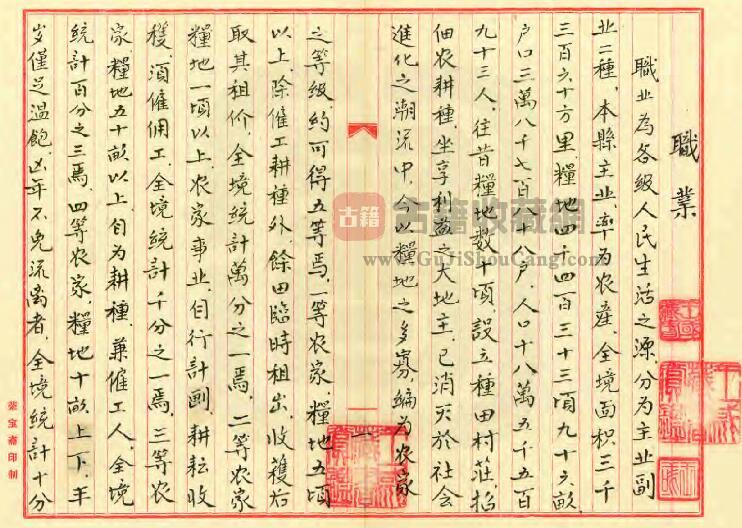 職業
職业為各級人民生活之源分為主业副
业二種.本縣主业.率为农產.全境面积三千
三百六十方里.糧地四千四百三十三頃九十六畝.
户口三萬八千七百八十八户.人口十八萬五千五百
九十三人.往昔糧地数十頃.設立種田村莊.招
佃农耕種.坐享利益之大地主.已消灭於社会
進化之潮流中.今以糧地之多寡.编为农家
之等级约可得五等焉.一等农家.糧地五頃
以上.除僱工耕種外.餘田臨時租出.收穫后
取其租价.全境統計萬分之一焉.二等农家
糧地一頃以上.农家事业.自行計劃.耕耘收
穫.須僱佣工.全境統計千分之一焉.三等农
家.糧地五十畝以上.自为耕種.兼僱工人.全境
統計百分之三焉.四等农家.糧地十畝上下.丰
岁僅足温飽.凶年不免流离者.全境統計十分
荣宝斋印制
古籍
古籍收藏網
www.GuJiShouCang.com